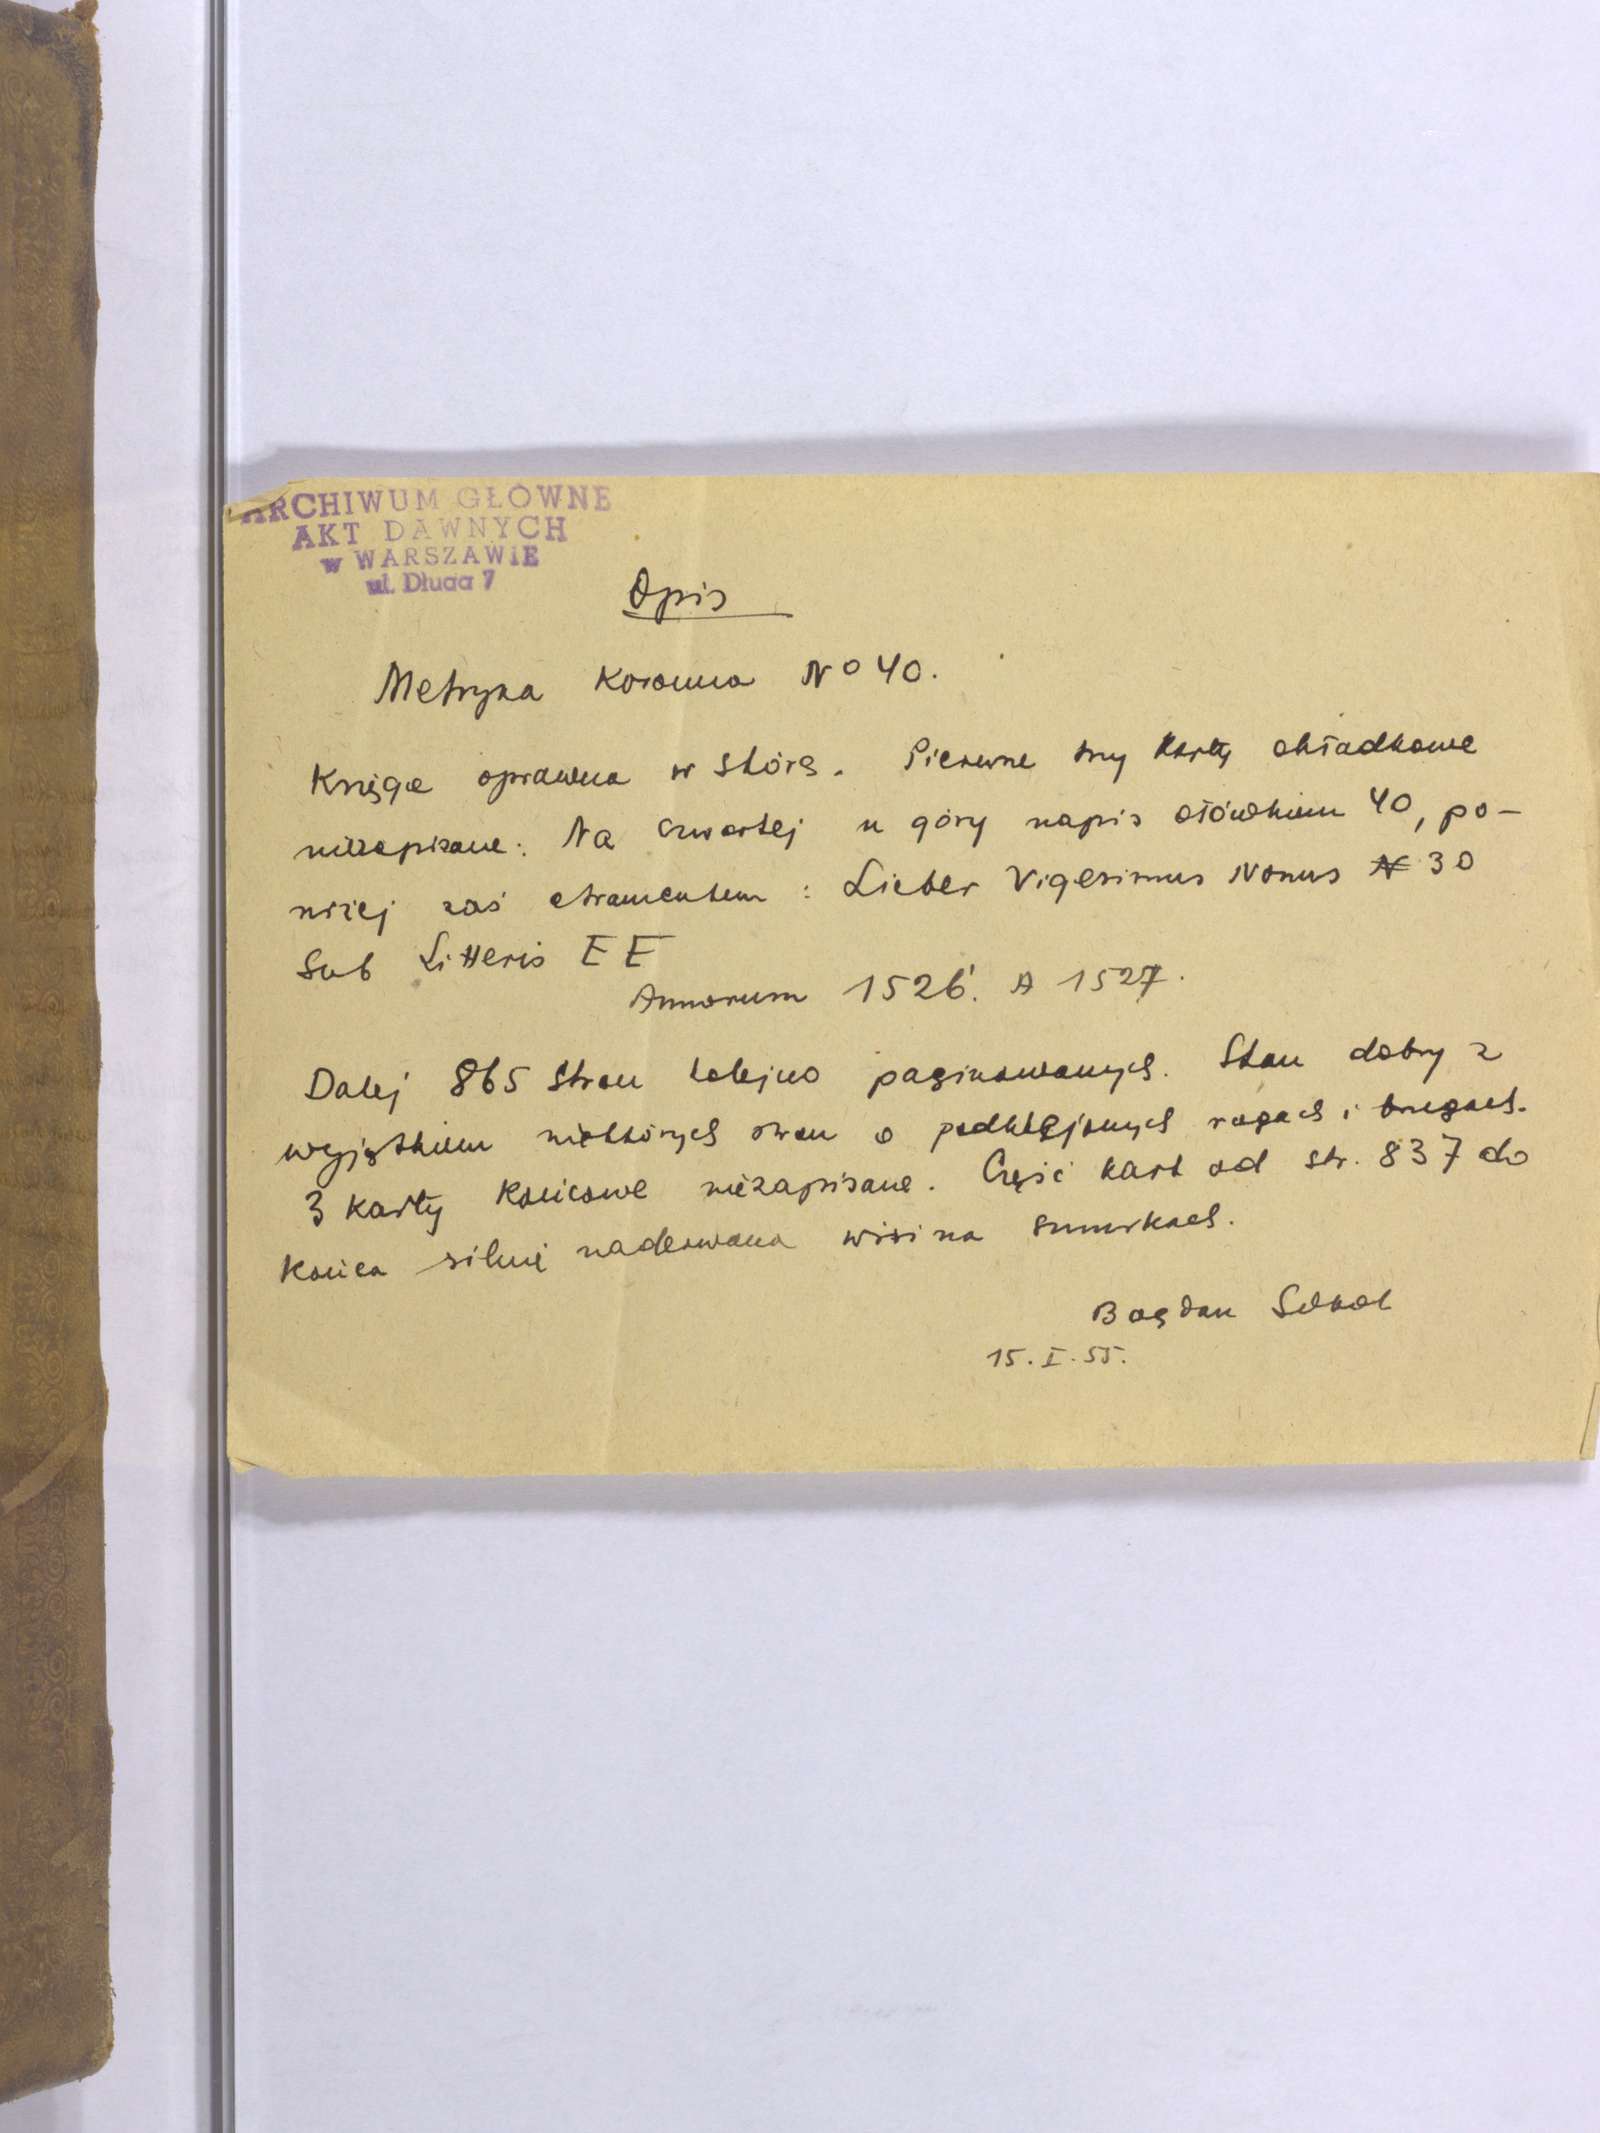 ARCHIWUM GŁÓWNE
AKT DAWNYCH
w WARSZAWIE
ul. Długa 7
Opis
Metryka Koronna No 40.
Księga oprawna w skórę. Pierwsze trzy karty okładkowe
niezapisane. Na czwartej u góry napis ołówkiem 40, po-
niżej zaś atramentem: Lieber Vigesimus Nonus N 30
Sub Litteris EE
Annorum 1526. A 1527.
Dalej 865 stron kolejno paginowanych. Stan dobry z
wyjątkiem niektórych stron o podklejonych rogach i brzegach.
3 karty końcowe niezapisane. Część kart od str. 837 do
końca silnie naderwana wisi na sznurkach.
Bogdan Sobol
15. I. 55.